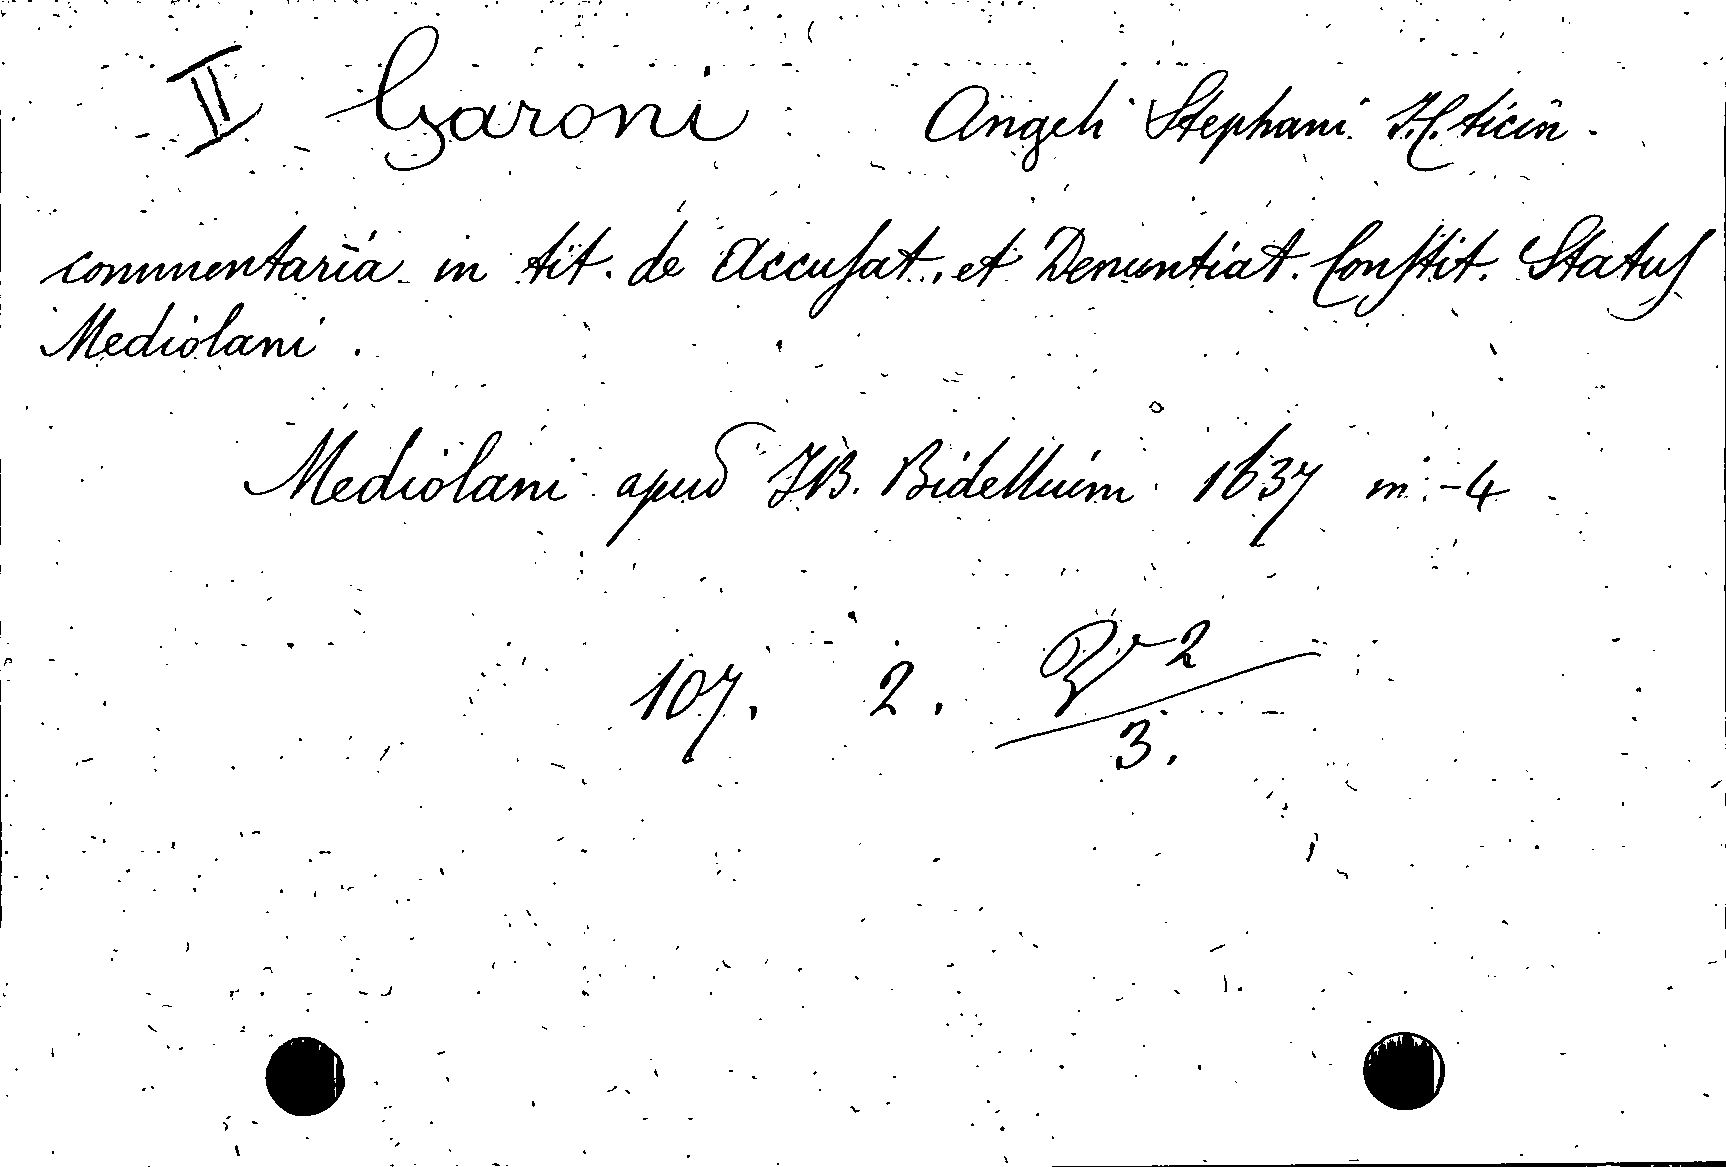 II Garoni Angeli Stephani J.C. ticin.
commentaria in tit. de Accuſat. et Denuntiat. Conſtit. Statuſ
Mediolani.
Mediolani apud J.B. Bidellium 1637 in-4
107. 2. 2
3.